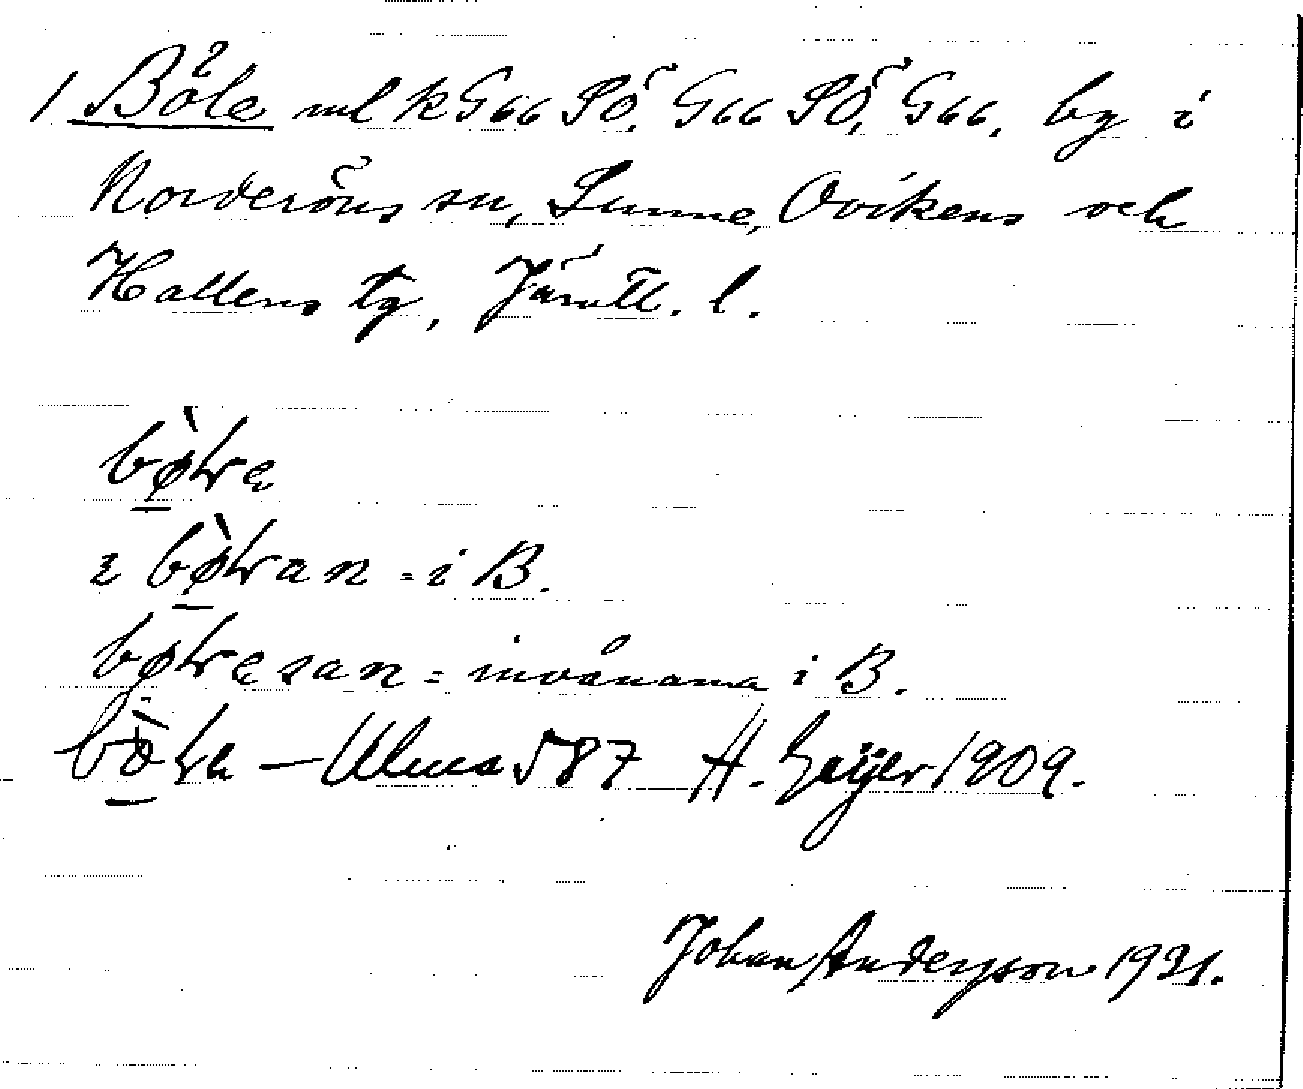 1 Böle ml k G66 SÖ, G66 SÖ, G66, by i
Norderöns sn, Sunne, Ovikens och
Hallens tg, Jämtl. l.
bø̀ɽe
ı bø̀ɽan = i B.
bøɽesan = invånarna i B.
bö̀ɽe – Ulma 587 H. Geijer 1909.
Johan Andersson 1931.